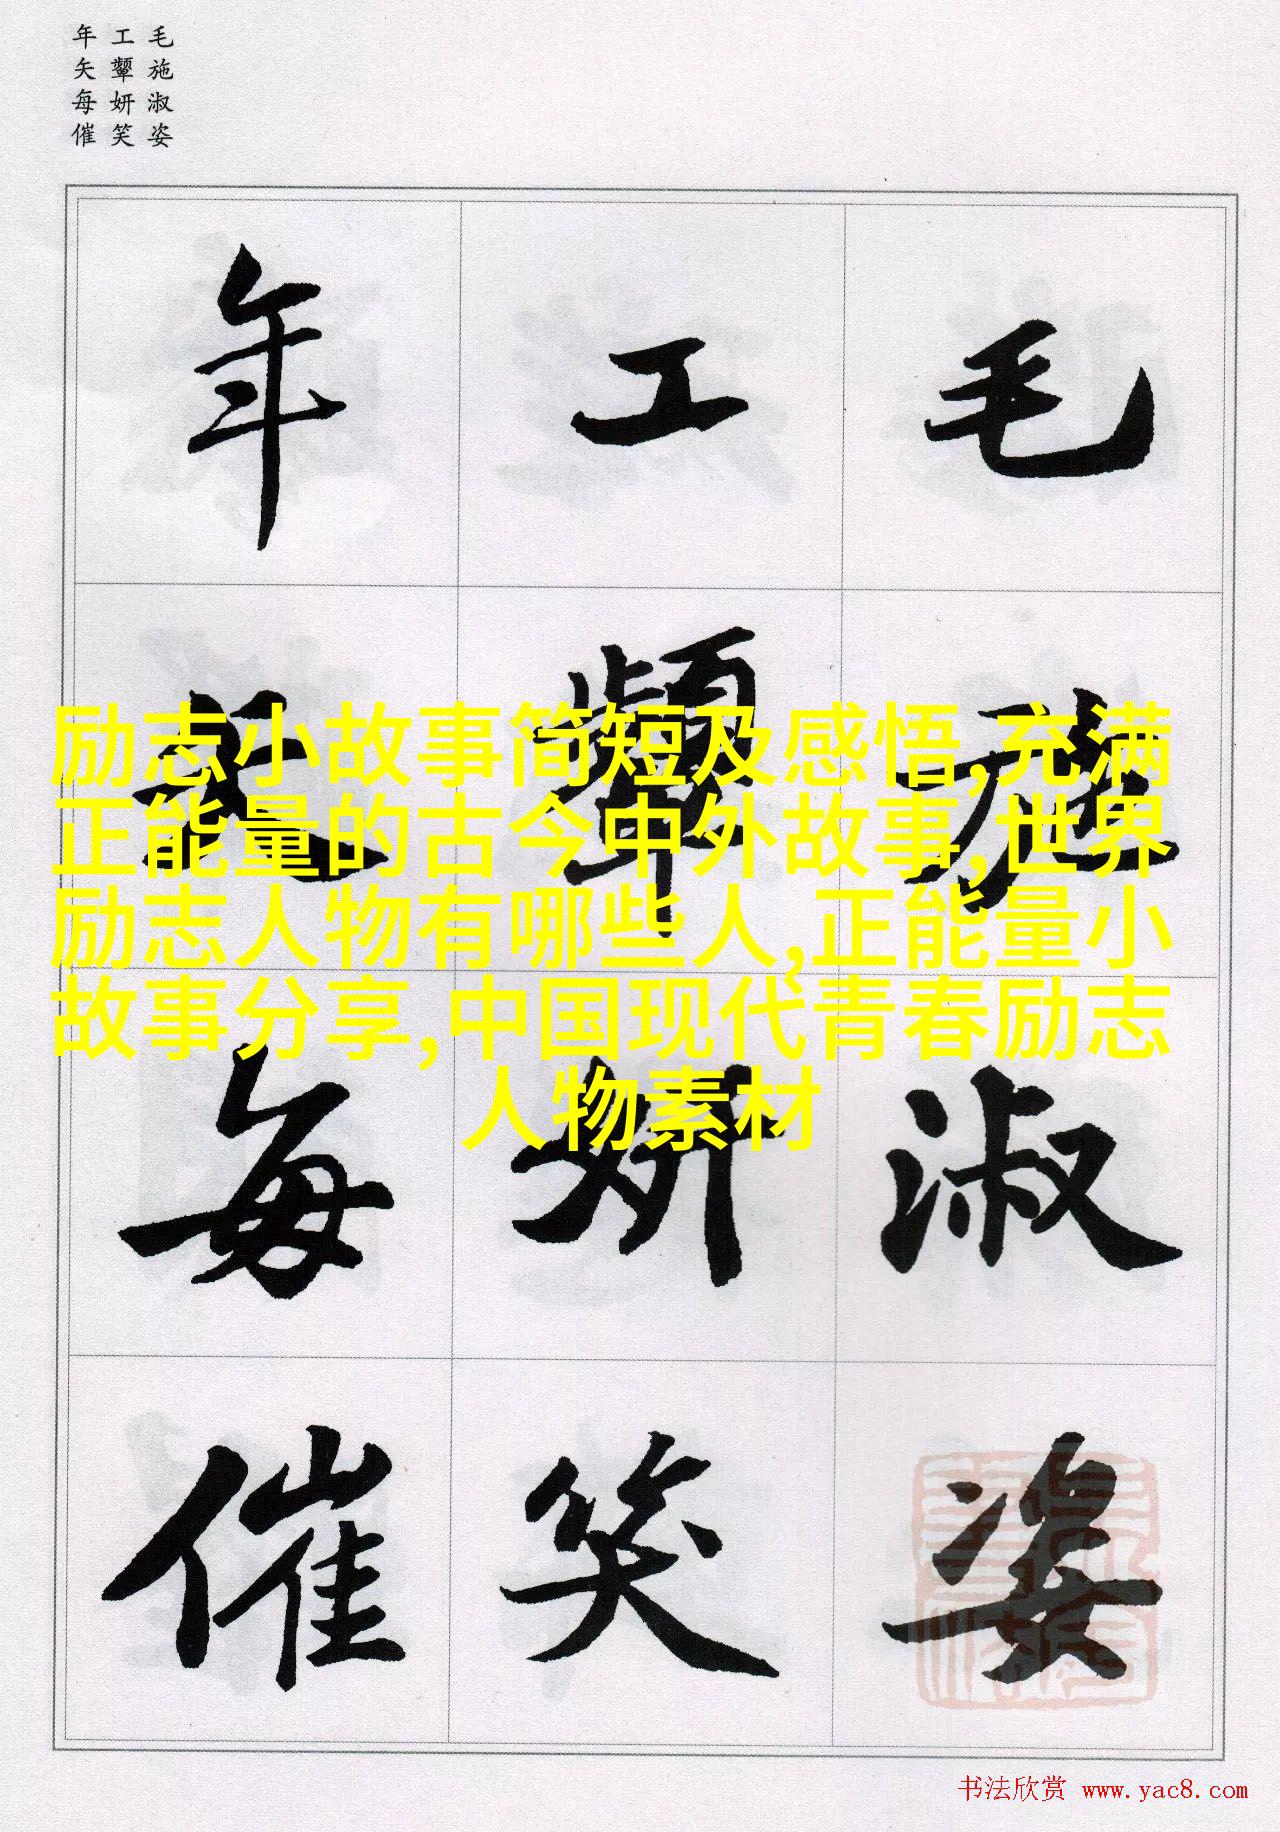 年 工 毛
矢 颦 施
每 妍 淑
催 笑 姿
年 工 毛
矢 颦 施
每 妍 淑
催 笑 姿
励志小故事简短及感悟,充满
正能量的古今中外故事,世界
励志人物有哪些人,正能量小
故事分享,中国现代青春励志
人物素材
书法欣赏 www.yac8.com